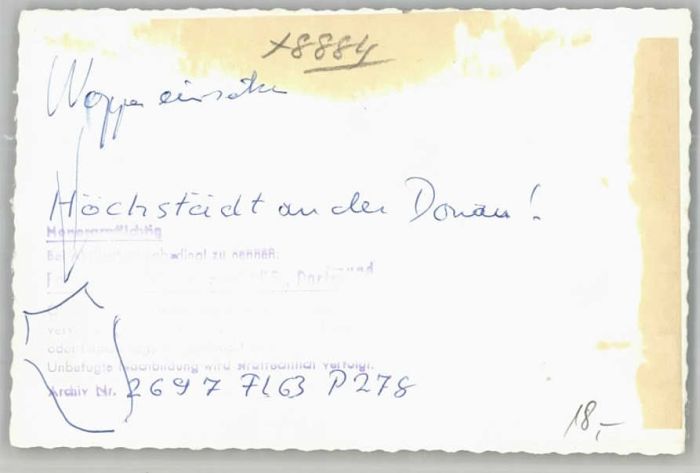 x8884
Wappen einsetzen
Höchstädt an der Donau!
Honorarpflichtig
zu nennen:
Dortmund
oder
Unbefugte Nachbildung wird strafrechtlich verfolgt.
Archiv Nr. 2697 7163 P278
18,-